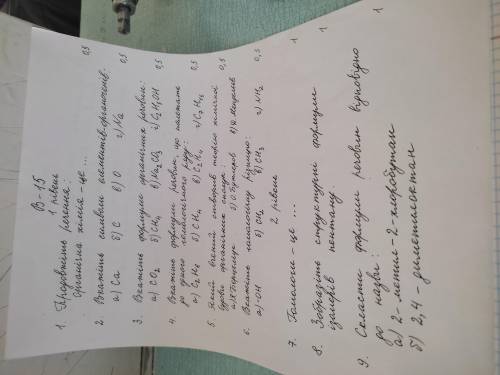 В-15
1 рівень
1. Продовжіть речення: 0,5
органічна хімія - це ...
2. Вкажіть символи елементів-органогенів. 0,5
а) Ca б) C в) O г) Na
3. Вкажіть формули органічних речовин: 0,5
а) CO2 б) CH4 в) Na2CO3 г) C2H5OH
4. Вкажіть формули речовин, що належать 0,5
до одного гомологічного ряду:
а) C2H6 б) CH4 в) C2H4 г) C7H16
5. Який вчений створив теорію хімічної 0,5
будови органічних сполук
б) О. Бутлеров
6. Вкажіть гомологічну різницю: 0,5
а) -OH б) CH2 в) CH3 г) NH2
2 рівень
7. Гомологи - це ... 1
8. Зобразіть структурні формули 1
ізомерів пентану.
9. Скласти формули речовин відповідно 1
до назви:
а) 2-метил-2-хлоробутан
б) 2,4-диметилоктан